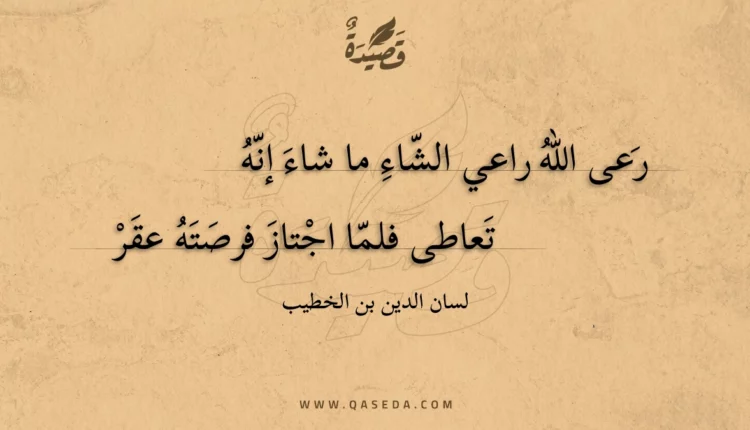 قَصِيْدَةٌ
رَعى اللهُ راعي الشّاءِ ما شاءَ إنّهُ
تَعاطى فلمّا اجْتازَ فرصَتَهُ عقَرْ
لسان الدين بن الخطيب
WWW.QASEDA.COM